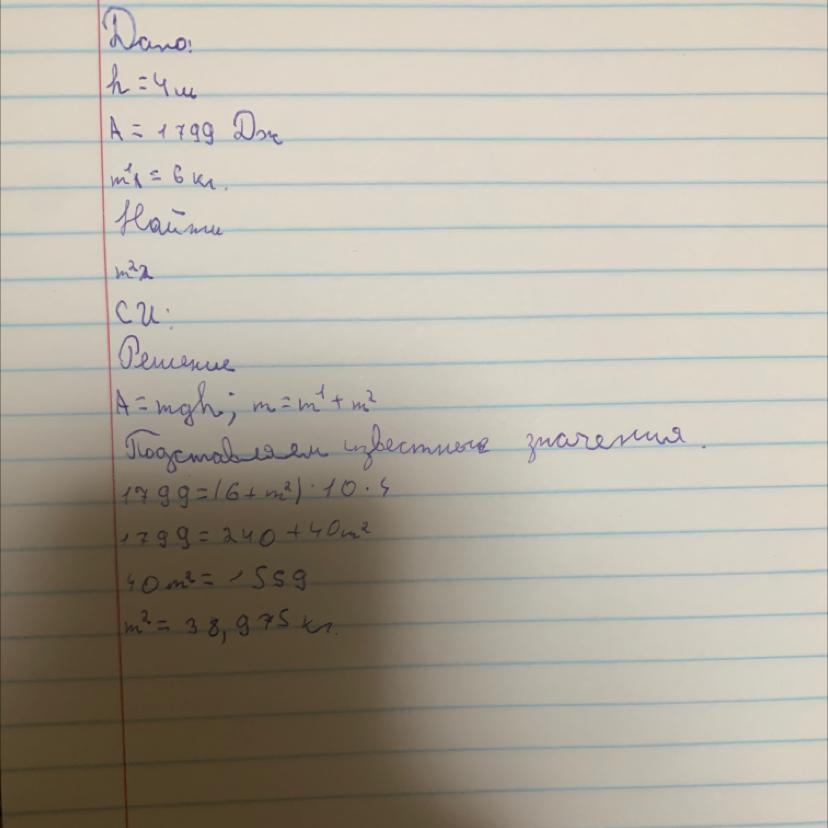 Дано:
h = 4 м
A = 1799 Дж
m¹ = 6 кг.
Найти
m²
СИ:
Решение
A = mgh; m = m¹ + m²
Подставляем известные значения.
1799 = (6 + m²) · 10 · 4
1799 = 240 + 40m²
40m² = 1559
m² = 38,975 кг.